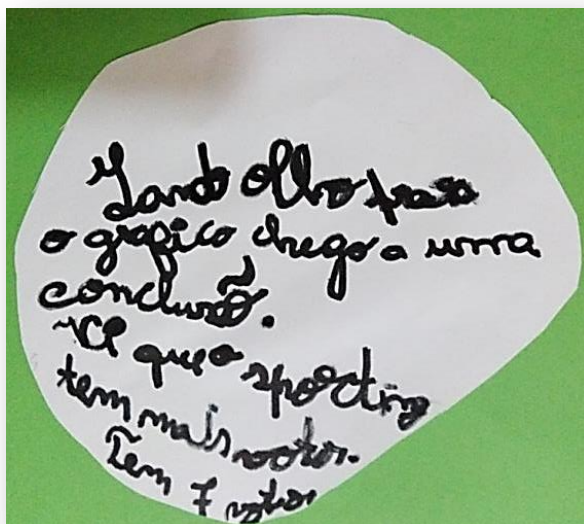 Quando olho para
o gráfico chego a uma
conclusão.
É que o sporting
tem mais votos.
Tem 7 votos